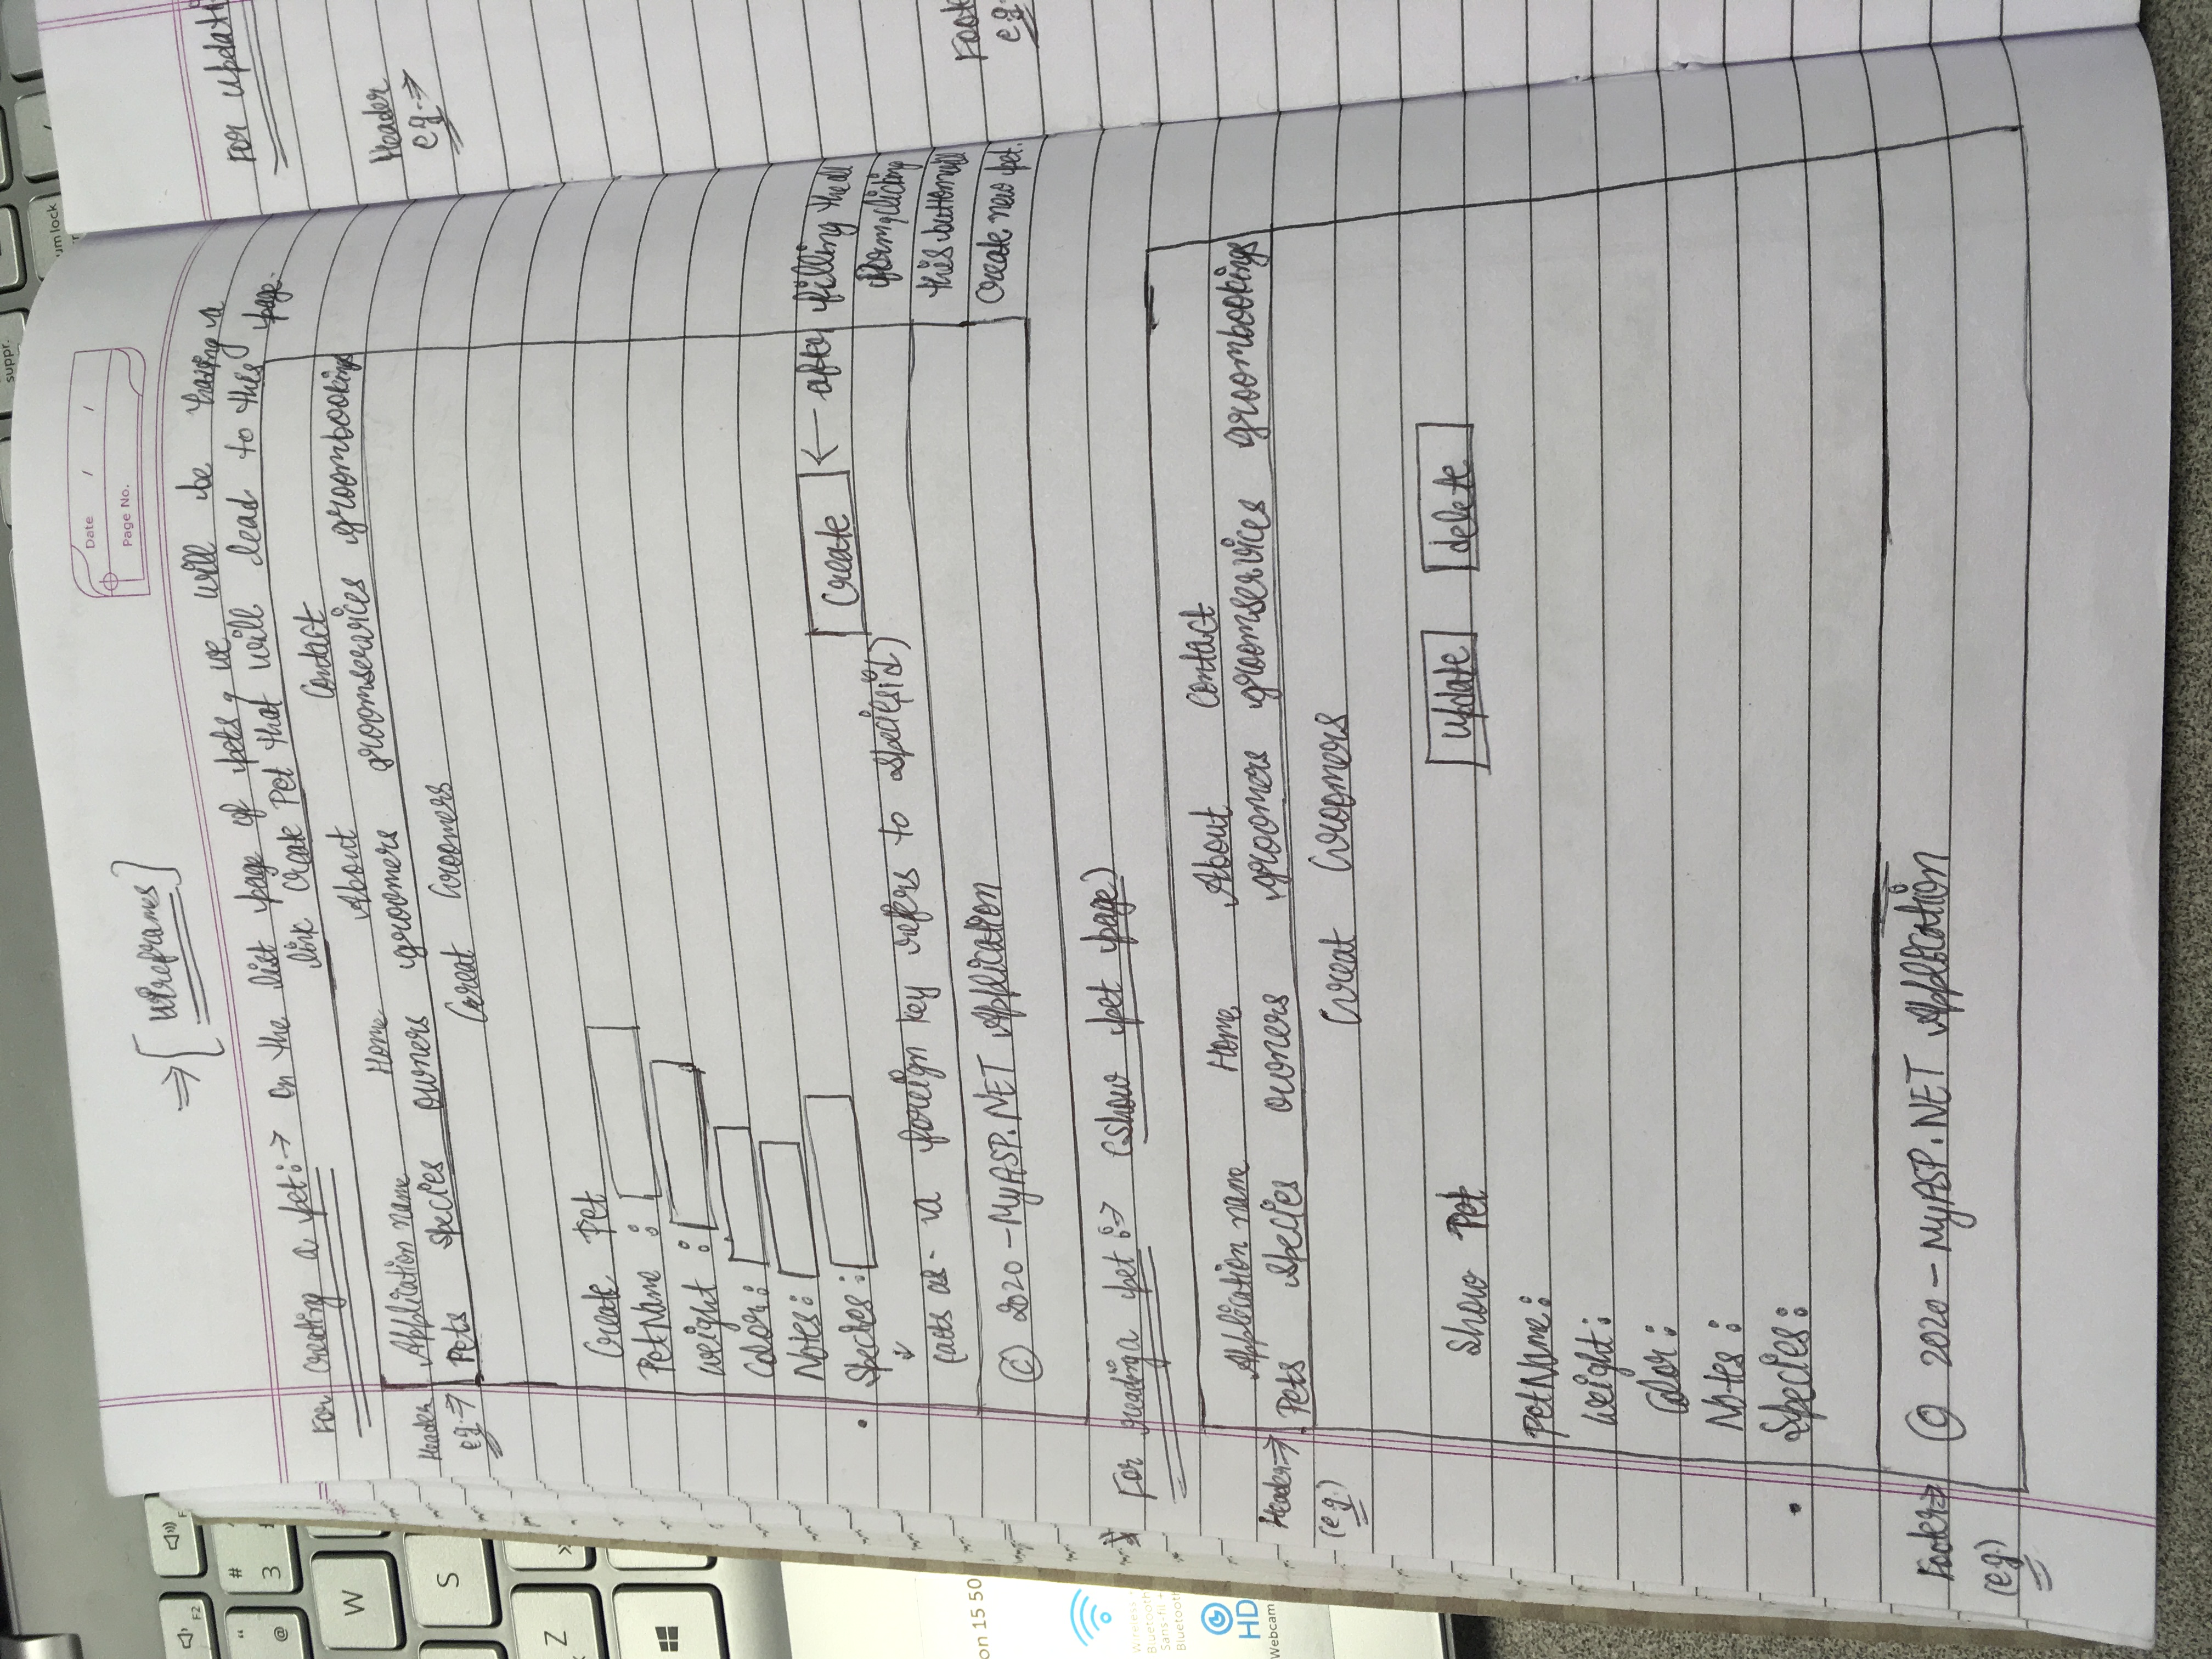 Date / /
Page No.
⇒ [ Wireframes ]
For creating a pet:→ On the list page of pets, we will be having a
link Create Pet that will lead to this page.
Header
e.g. ⇒
Application name Home About Contact
Pets Species owners groomers groomservices groombookings
Great Groomers
Create Pet
PetName :
Weight :
Color :
Notes :
Species :
(acts as a foreign key refers to speciesid)
Create ← after filling the all
form, clicking
this button will
create new pet.
© 2020 - My ASP.NET Application
For reading a pet :→ (Show pet page)
Header ⇒
(e.g.)
Application name Home About Contact
Pets Species owners groomers groomservices groombookings
Great Groomers
Show Pet Update delete
PetName :
Weight :
Color :
Notes :
Species :
Footer ⇒
(e.g.)
© 2020 - My ASP.NET Application
For updati
Header
e.g. ⇒
Foote
e.g.
suppr.
um lock
F2
"
@
#
3
W
S
Z
on 15 50
Wireless +
Bluetooth
Sans-fil +
Bluetooth
HD
Webcam